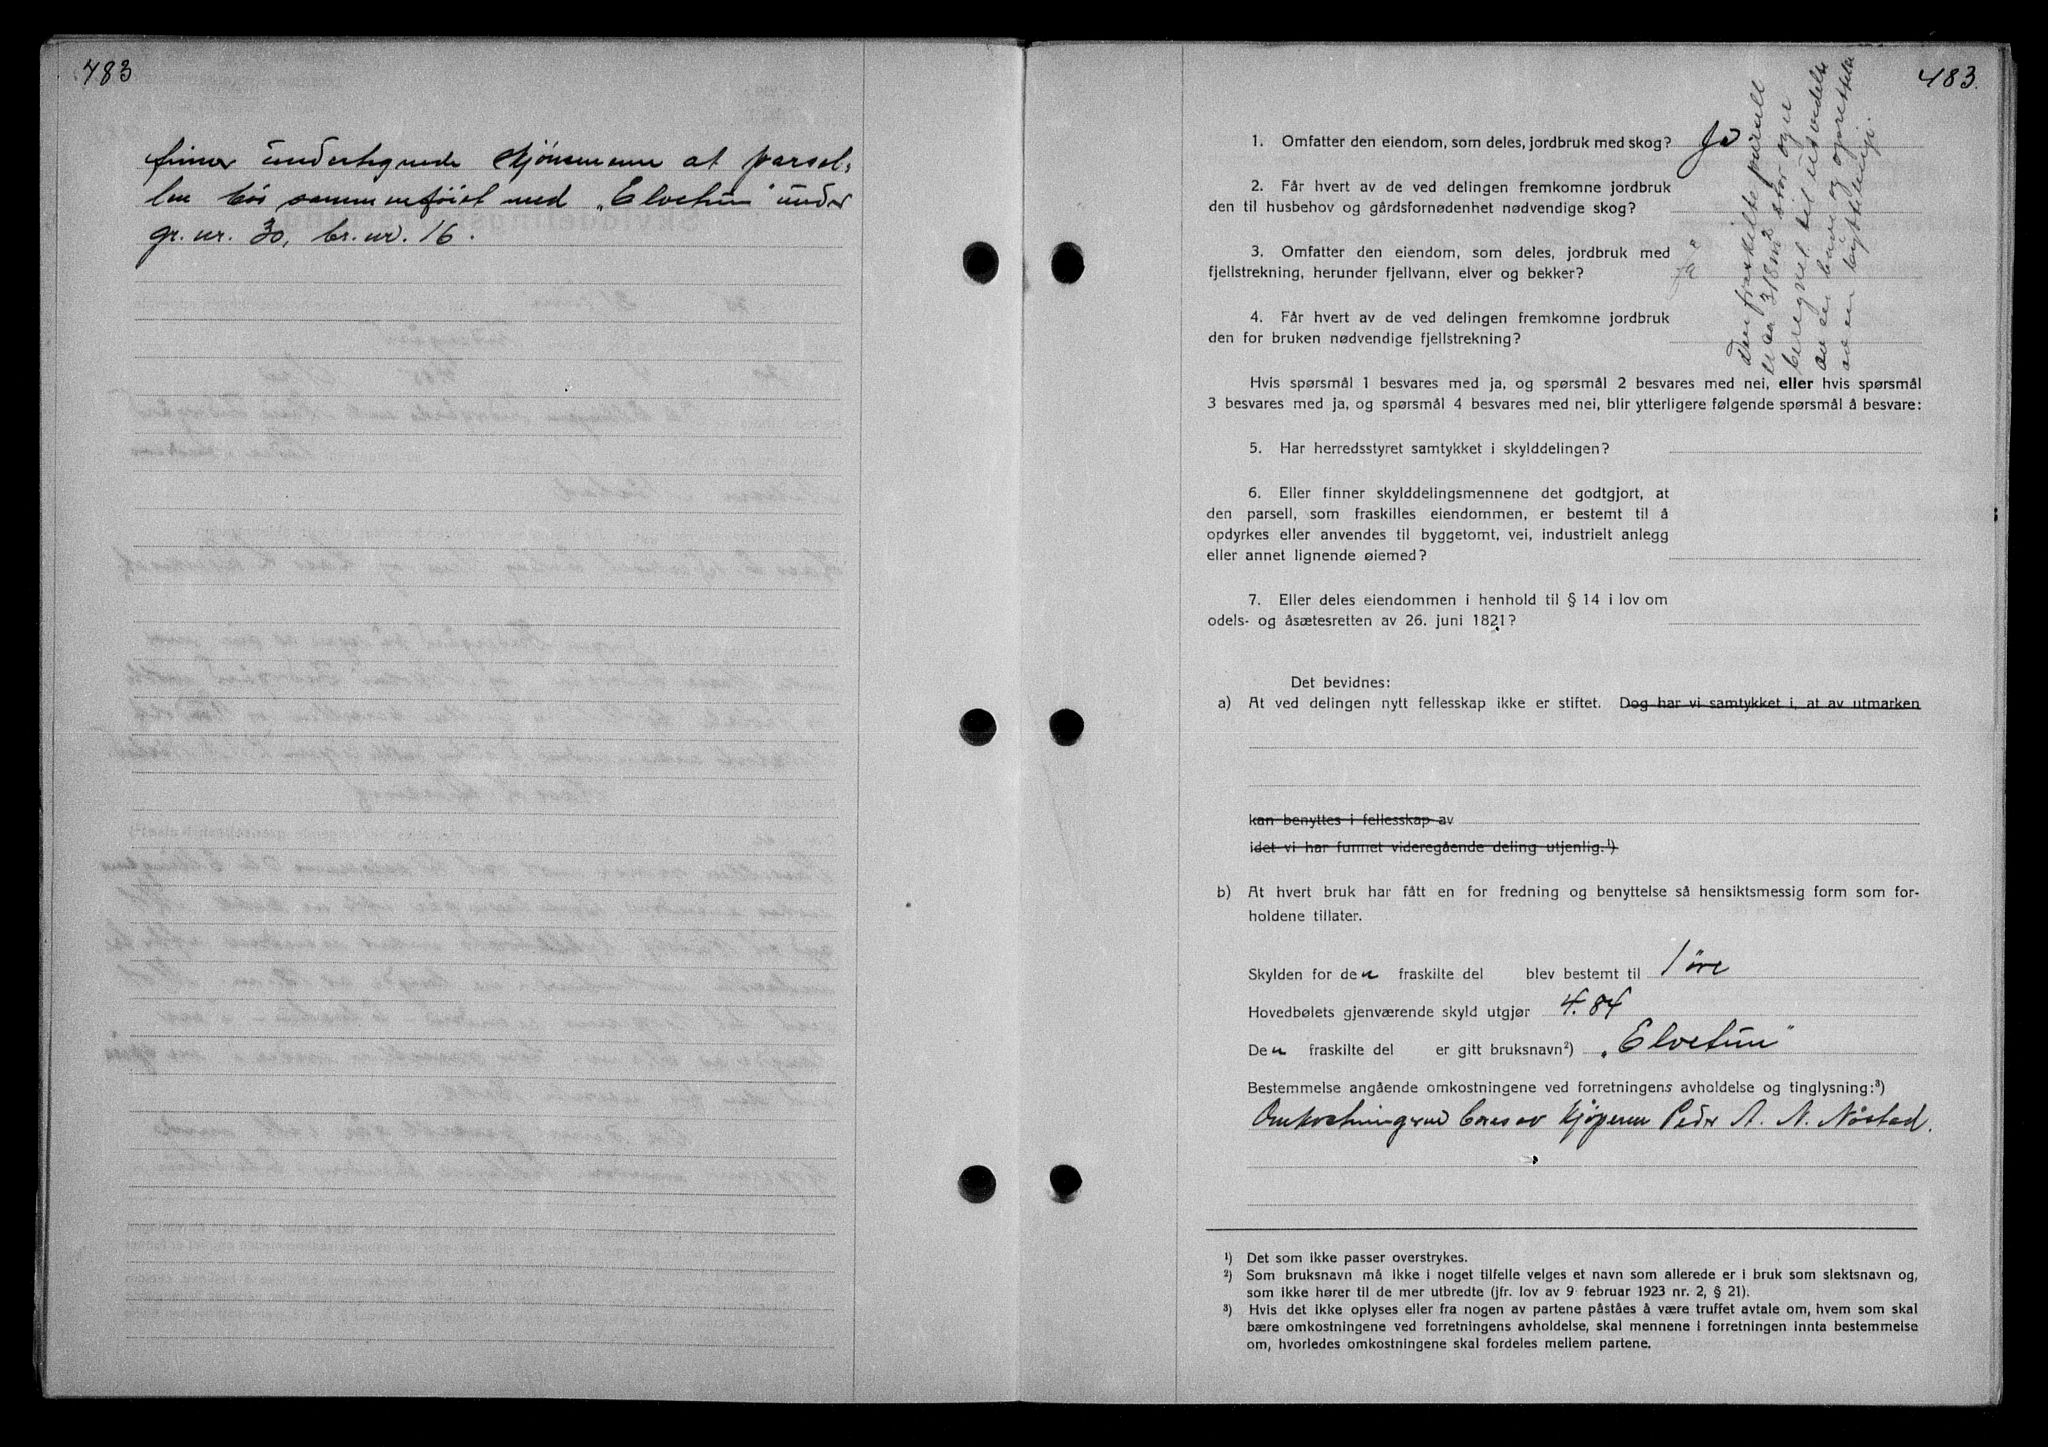 483
finner undertegnede skjønsmenn at parsel-
len bør sammenføiet med „Elvetun" under
gr. nr. 30, br. nr. 16.
483.
1. Omfatter den eiendom, som deles, jordbruk med skog? Ja
2. Får hvert av de ved delingen fremkomne jordbruk
den til husbehov og gårdsfornødenhet nødvendige skog?
3. Omfatter den eiendom, som deles, jordbruk med
fjellstrekning, herunder fjellvann, elver og bekker?
4. Får hvert av de ved delingen fremkomne jordbruk
den for bruken nødvendige fjellstrekning?
Den fraskilte parsell
er ca 318 m² stor og er
beregnet til utvidelse
av en have og oprettelse
av en byttelinje.
Hvis spørsmål 1 besvares med ja, og spørsmål 2 besvares med nei, eller hvis spørsmål
3 besvares med ja, og spørsmål 4 besvares med nei, blir ytterligere følgende spørsmål å besvare:
5. Har herredsstyret samtykket i skylddelingen?
6. Eller finner skylddelingsmennene det godtgjort, at
den parsell, som fraskilles eiendommen, er bestemt til å
opdyrkes eller anvendes til byggetomt, vei, industrielt anlegg
eller annet lignende øiemed?
7. Eller deles eiendommen i henhold til § 14 i lov om
odels- og åsætesretten av 26. juni 1821?
Det bevidnes:
a) At ved delingen nytt fellesskap ikke er stiftet. Dog har vi samtykket i, at av utmarken
kan benyttes i fellesskap av
idet vi har funnet videregående deling utjenlig.¹)
b) At hvert bruk har fått en for fredning og benyttelse så hensiktsmessig form som for-
holdene tillater.
Skylden for den fraskilte del blev bestemt til 1 øre
Hovedbølets gjenværende skyld utgjør 4.84
Den fraskilte del er gitt bruksnavn²) „Elvetun"
Bestemmelse angående omkostningene ved forretningens avholdelse og tinglysning:³)
Omkostningene bæres av kjøperen Peder A. N. Nøstad.
¹) Det som ikke passer overstrykes.
²) Som bruksnavn må ikke i noget tilfelle velges et navn som allerede er i bruk som slektsnavn og,
som ikke hører til de mer utbredte (jfr. lov av 9 februar 1923 nr. 2, § 21).
³) Hvis det ikke oplyses eller fra nogen av partene påståes å være truffet avtale om, hvem som skal
bære omkostningene ved forretningens avholdelse, skal mennene i forretningen innta bestemmelse
om, hvorledes omkostningene skal fordeles mellem partene.